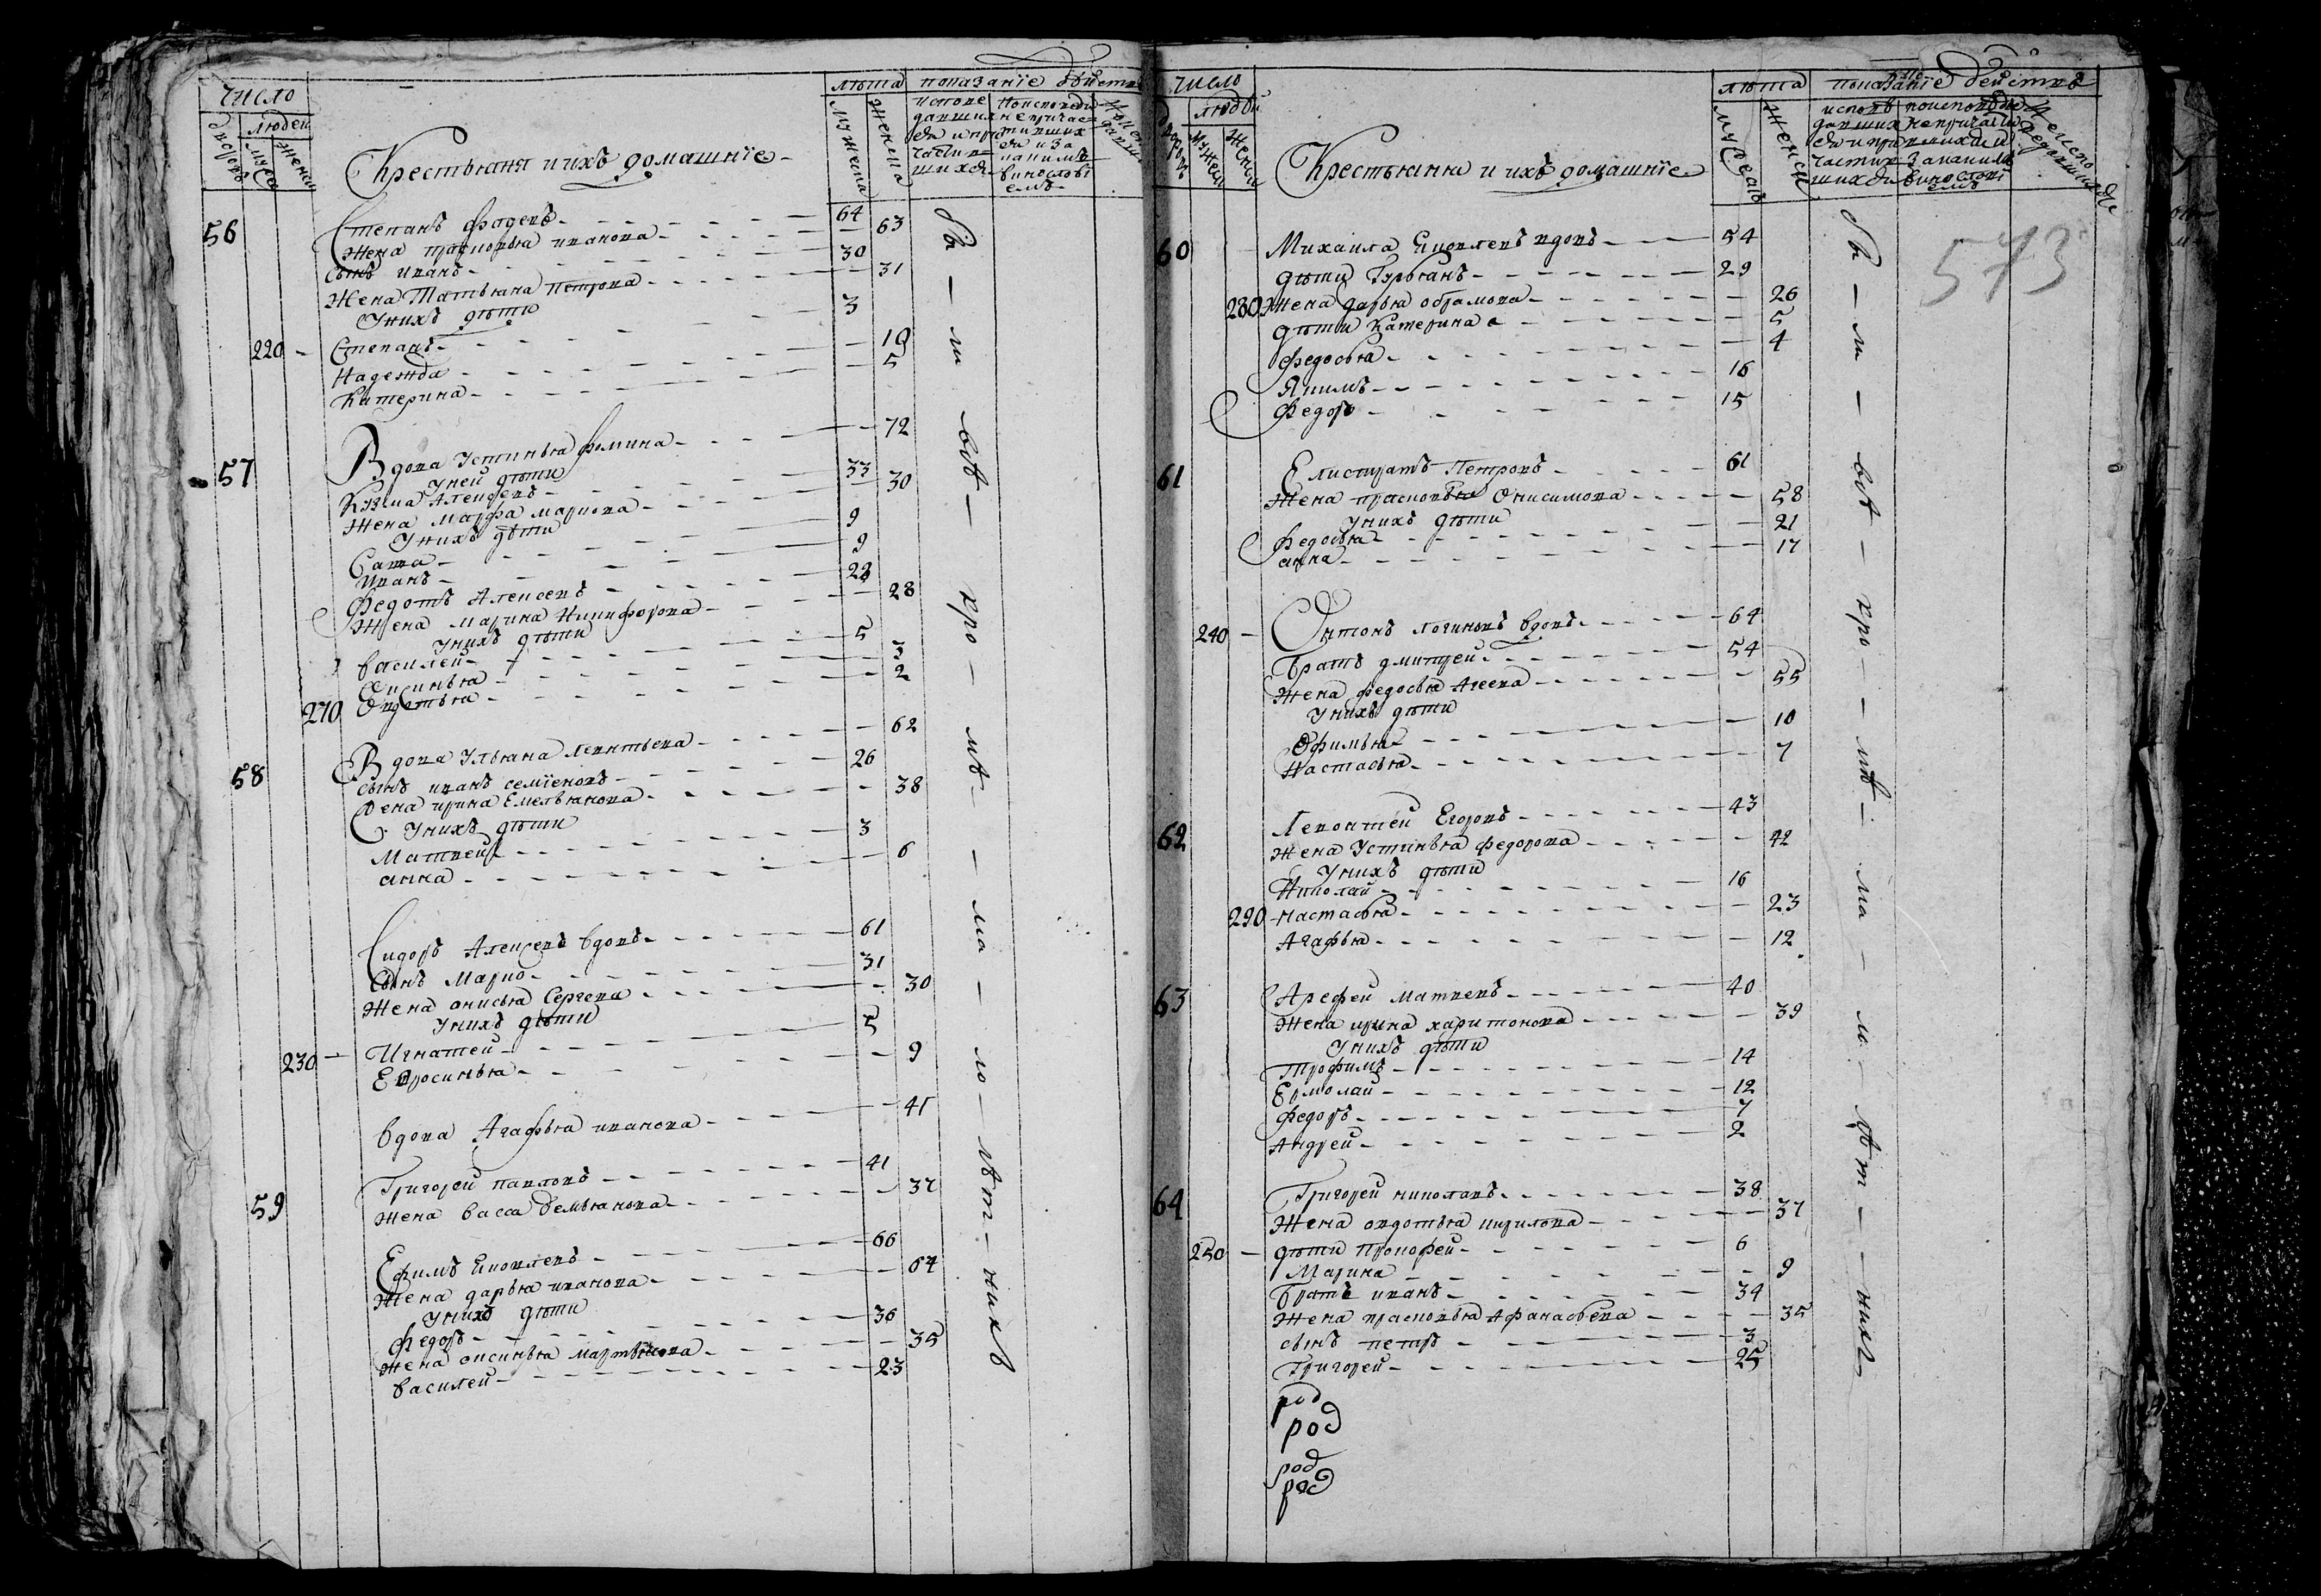 число
людей
дворовъ
муска
женска
Крестьяня и ихъ домашніе
люта
мужеска
женска
показаніе действъ
56
Степанъ Фадеевъ 64
жена прасковья иванова 63
сынъ иванъ 30
жена Татьяна петрова 31
у нихъ дѣти
220
Степанъ 3
Надежда 10
Катерина 5
57
Вдова Устинья фомина 72
у ней дѣти
Кузма Алексеевъ 33
жена марфа маркова 30
у нихъ дѣти
Савва 9
Иванъ 9
Федотъ Алексеевъ
жена марина Никифорова 28
у нихъ дѣти
василей 5
Аксинья 3
270
Овдотья 2
58
Вдова Ульяна леонтьева 62
сынъ иванъ семіеновъ 26
жена ирина Емельянова 38
у нихъ дѣти
Матвей 3
анна 6
Сидоръ Алексеевъ вдовъ 61
сынъ Марко 31
жена анисья Сергеева 30
у нихъ дѣти
230
Игнатей 5
Евросинья 9
вдова Агафья иванова 41
59
Григорей павловъ 41
жена васса демьянова 37
Ефимъ Яковлевъ 66
жена дарья иванова 64
у нихъ дѣти
федоръ 36
жена аксинья мартынова 35
василей 23
вѣ — ли — вѣ — кро — мѣ — ма — ло — лѣт — нихъ
число
людей
дворовъ
мужеска
женска
Крестьяня и ихъ домашніе
люта
женска
показаніе действъ
573
60
Михаила Яковлевъ вдовъ 54
дѣти Гурьянъ 29
280
жена дарья обрамова 26
дѣти Катерина 5
федосья 4
Якимъ 16
Федоръ 15
61
Елистратъ Петровъ 61
жена прасковья Онисимова 58
у нихъ дѣти
федосья 21
анна 17
240
Онтонъ логиновъ вдовъ 64
братъ дмитрей 54
жена федосья Агеева 55
у нихъ дѣти
Офимья 10
Настасья 7
62
Левонтей Егоровъ 43
жена Устинья федорова 42
у нихъ дѣти
Николай 16
290
настасья 23
Агафья 12
63
Арефей матвеевъ 40
жена ирина харитонова 39
у нихъ дѣти
трофимъ 14
Ермолай 12
федоръ 7
Андрей 2
64
Григорей николаевъ 38
жена овдотья кирилова 37
250
дѣти Прокофей 6
Марина 9
братъ иванъ 34
жена прасковья Афанасьева 35
сынъ петръ 3
Григорей 25
род
род
род
род
вѣ — ли — вѣ — кро — мѣ — ма — ло — лѣт — нихъ